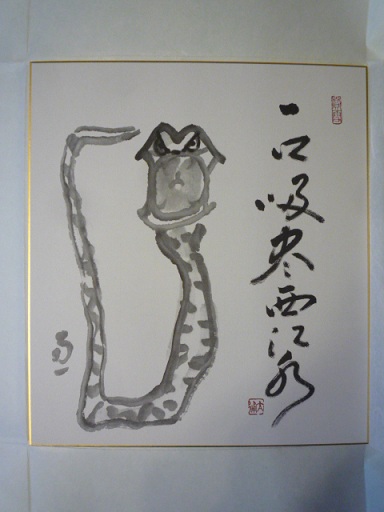 一口吸尽西江水